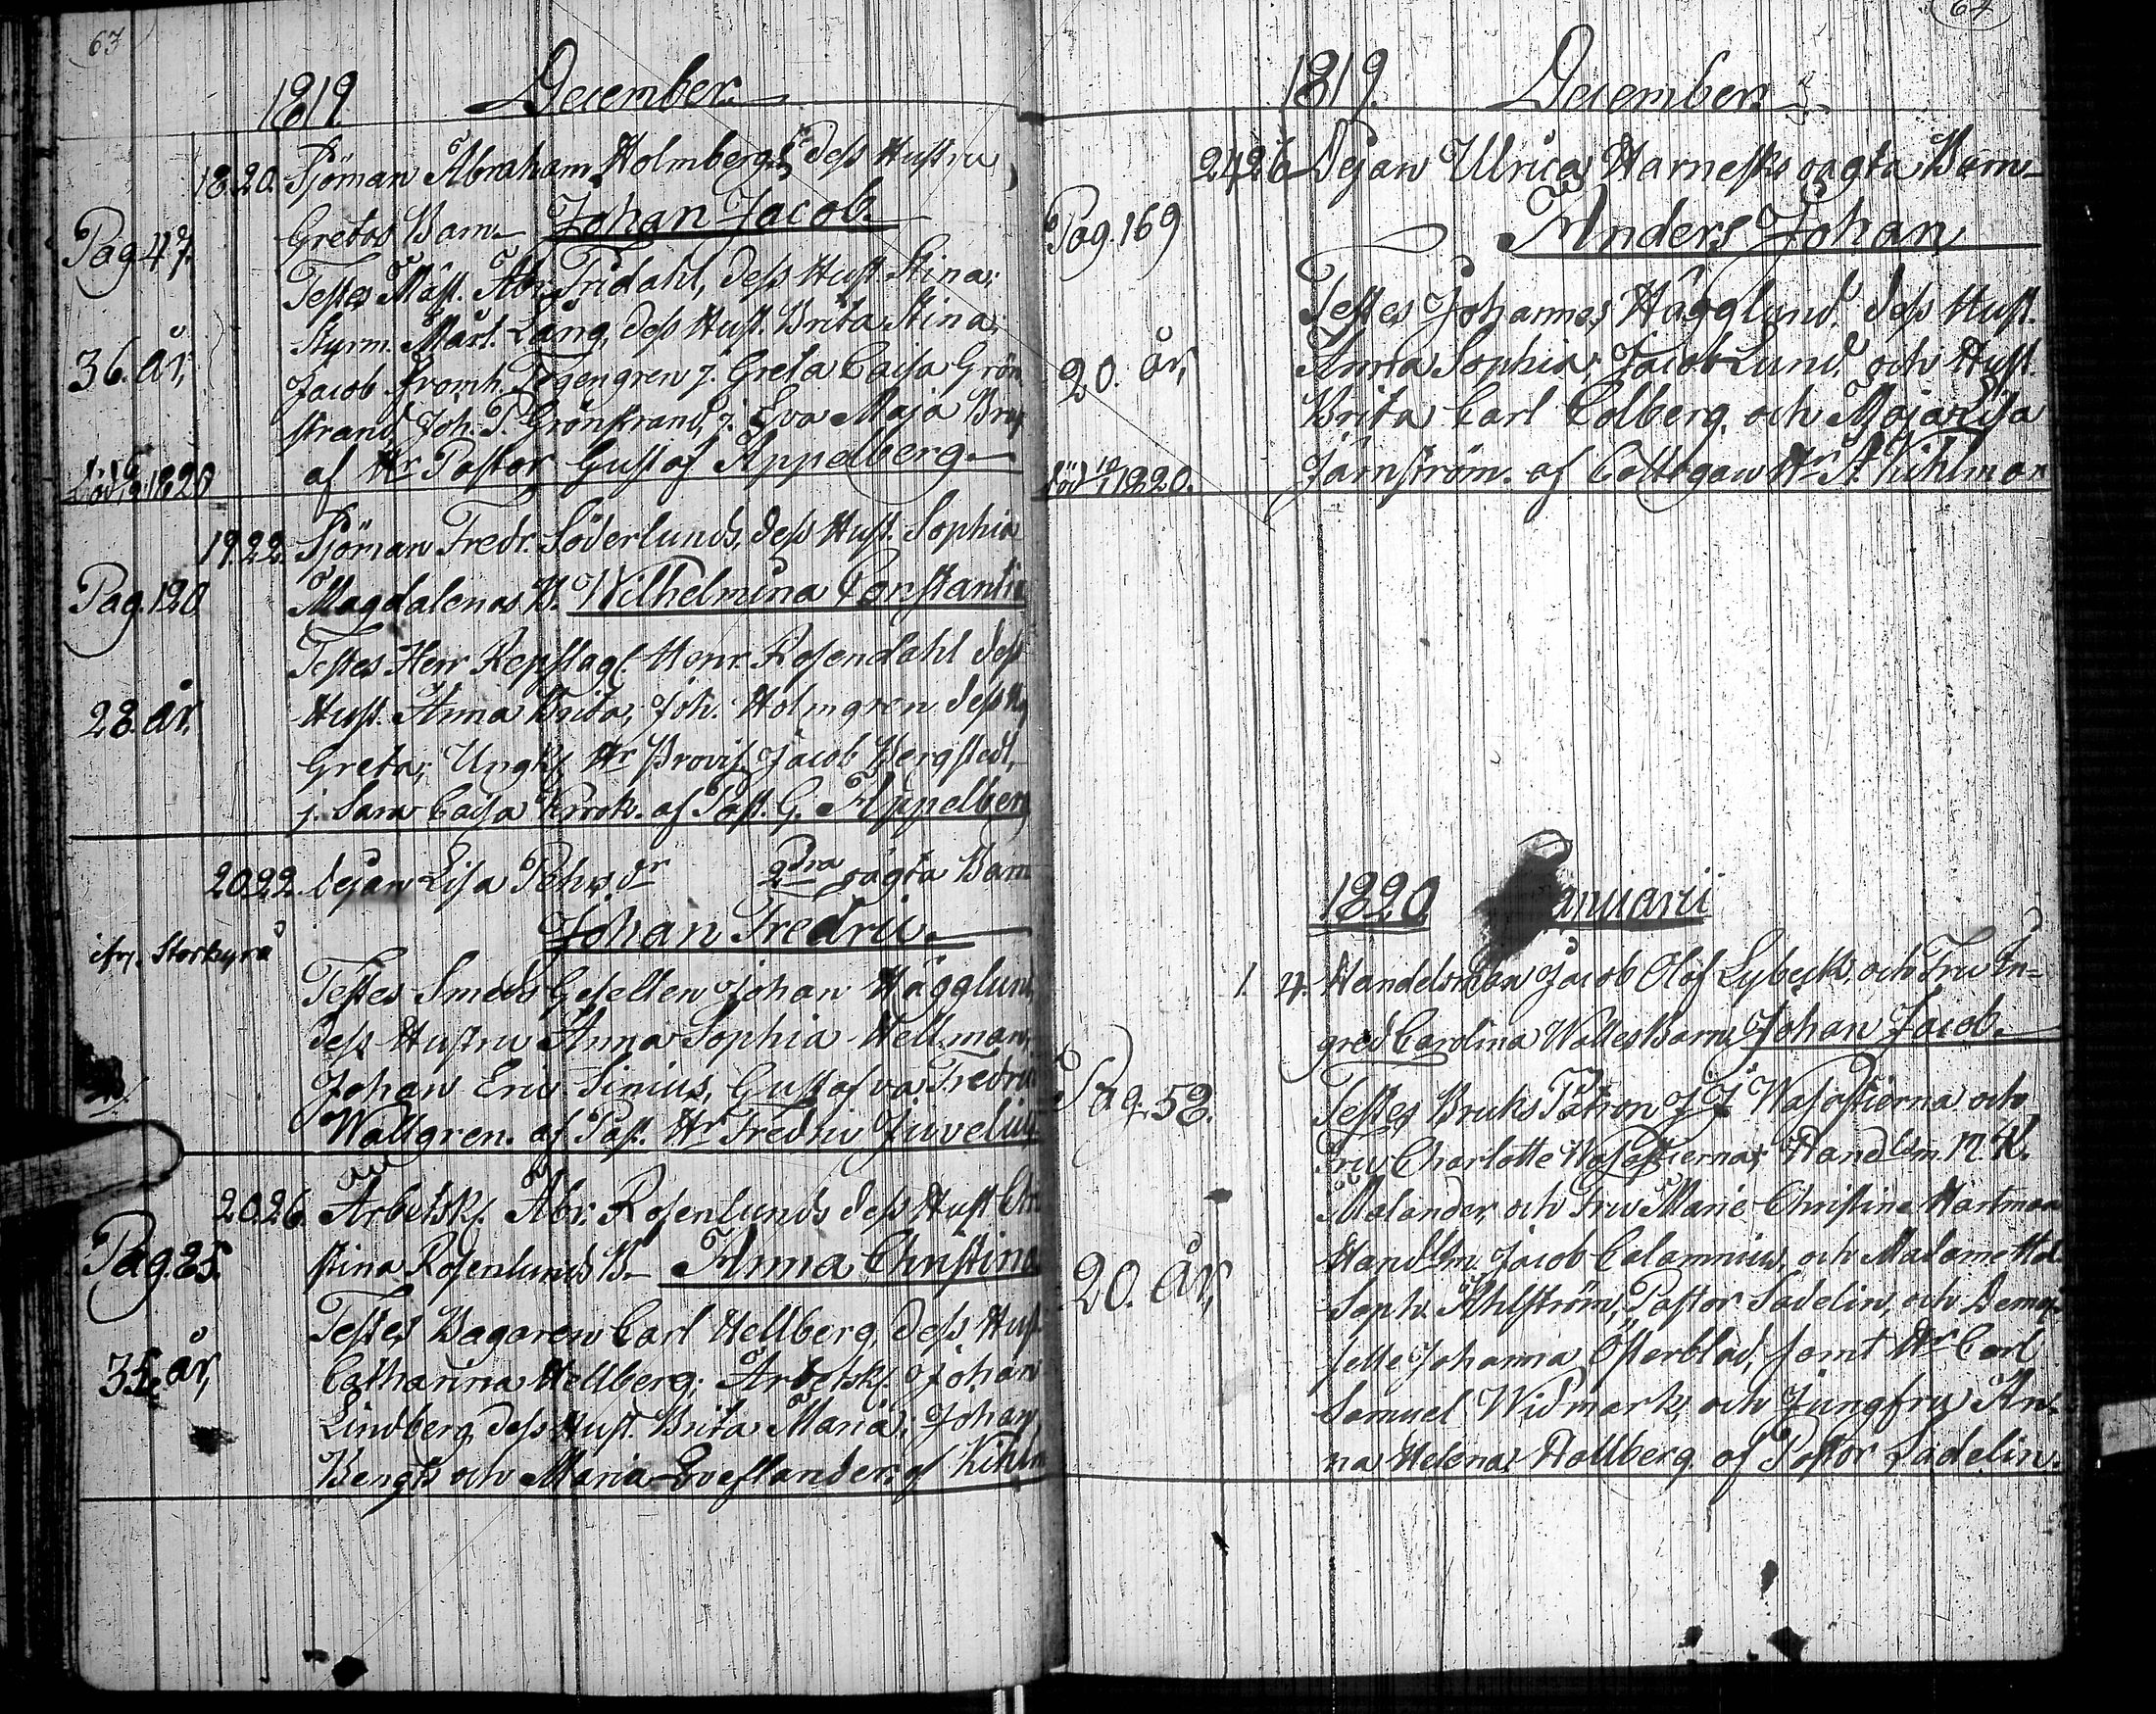 63
1819. December.
18. 20. Sjöman Abraham Holmbergs, dess Hustru
Pag. 47. Gretas Barn Johan Jacob.
Testes Mäst. Abr. Tridahl, dess Hust. Stina;
Styrm. Mårt. Lång, dess Hust. Brita Stina,
36. år, Jacob Fromh. Tegengren j. Greta Caisa Grön
strand, Joh. P. Grönstrand, j. Eva Maja
1820 af Hr Pastor Gustaf Appelberg.
19. 22. Sjöman Fredr. Söderlunds, dess Hust. Sophia
Pag. 120 Magdalenas B. Wilhelmina Constantia
Testes Herr Repslag. Henr. Rosendahl dess
28. år, Hust. Anna Brita, Joh. Holmgren dess
Greta; Ungk. Hr Provis. Jacob Bergstedt,
j. Sara Caisa Krook. af Past. G. Appelberg
20. 22. Pejan Lisa Pehrsdr 2dra oägta Barn
Johan Fredric.
ifr. Storkyro
Testes Smeds Gesellen Johan Hägglund,
dess Hustru Anna Sophia Hellman,
Johan Eric Sinius, Gustafva Fredrica
Wallgren. af Past. Hr Fredric Juvelius
20. 26. Arbetsk. Abr. Rosenlunds dess Hust Chri
Pag. 25. stina Rosenlunds B. Anna Christina
Testes Bagaren Carl Hellberg, dess Hust.
35. år, Catharina Hellberg; Arbetsk. Johan
Lindberg, dess Hust. Brita Maria; Johan
Bengts och Maria af Kihlm
64
1819. December.
24. 26 Pejan Ulrica Harnesks oägta Barn
Pag. 169 Anders Johan
Testes Johannes Hägglund. dess Hust.
20. år, Anna Sophia; Jacob Lund. och Hust.
Brita Carl Colberg. och Maja Lisa
död 1820. Järnström. af Collegan Hr A. Kihlman
1820. Januarii
1. 4. Handelsman Jacob Olof Lybecks, och Fru In=
gred Carolina Wolles Barn Johan Jacob.
Pag. 52. Testes Bruks Patron J J Wasastierna och
Fru Charlotte Wasastierna; Handlsm.
Malander, och Fru Marie Christine Hartman
Handlsm. Jacob Calamnius, och Madame Hed.
20. år, Soph. Ahlström, Pastor Sadelin, och Demoi-
selle Johanna Österblad, samt Hr Carl
Samuel Widmark, och Jungfru An-
na Helena Hollberg af Pastor Sadelin.